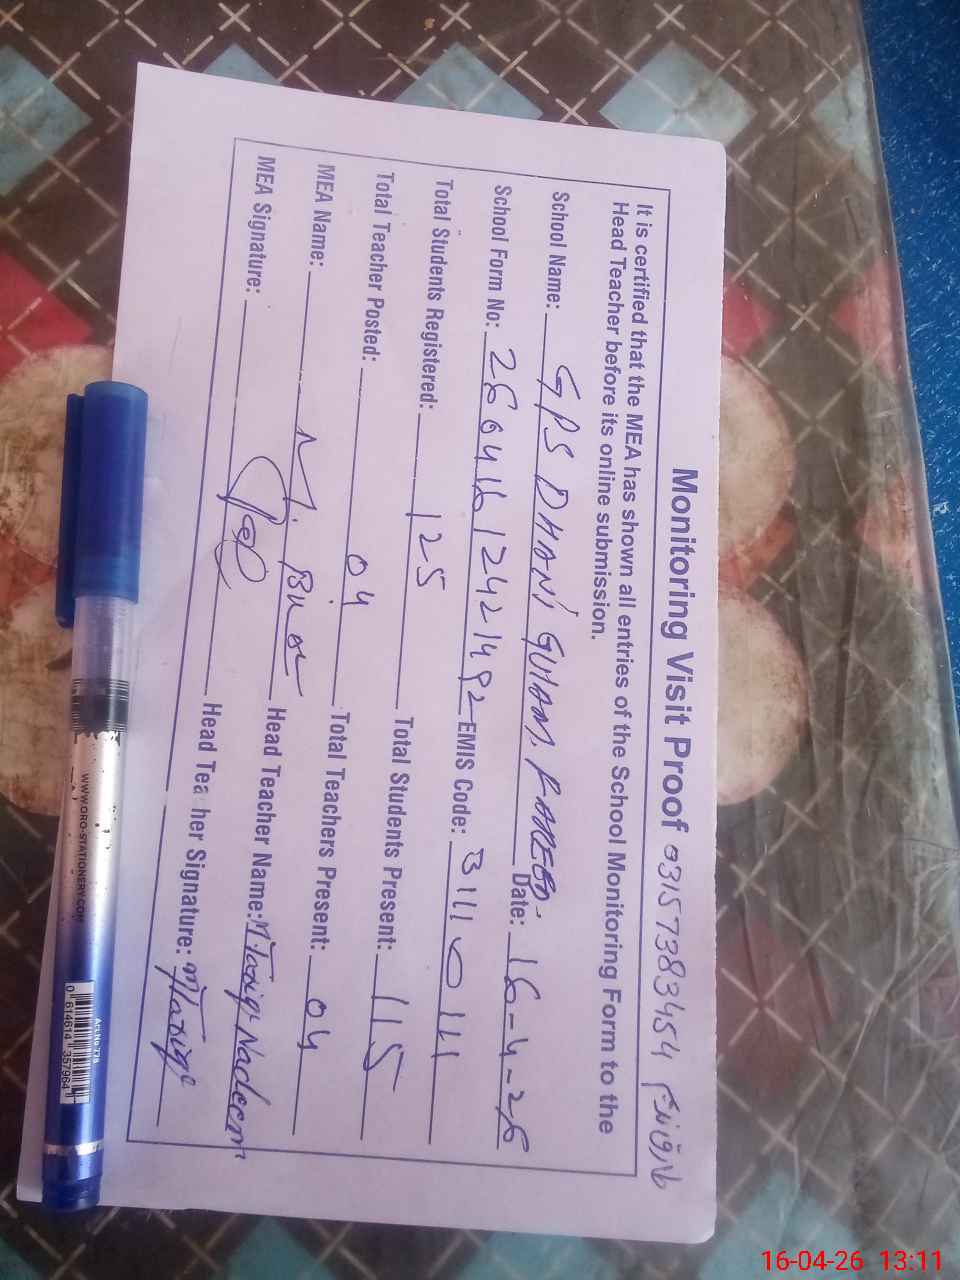 Monitoring Visit Proof 03157383454 طارق ندیم
It is certified that the MEA has shown all entries of the School Monitoring Form to the
Head Teacher before its online submission.
School Name: GPS DHANI GHAM. FAREED. Date: 16-4-26
School Form No: 26041612421492 EMIS Code: 31110111
Total Students Registered: 125 Total Students Present: 115
Total Teacher Posted: 04 Total Teachers Present: 04
MEA Name: M. Head Teacher Name: M.Tariq Nadeem
MEA Signature: Head Teacher Signature: MTariq
WWW.ORO-STATIONERY.COM
Art.No.778
0 614614 357964
16-04-26 13:11